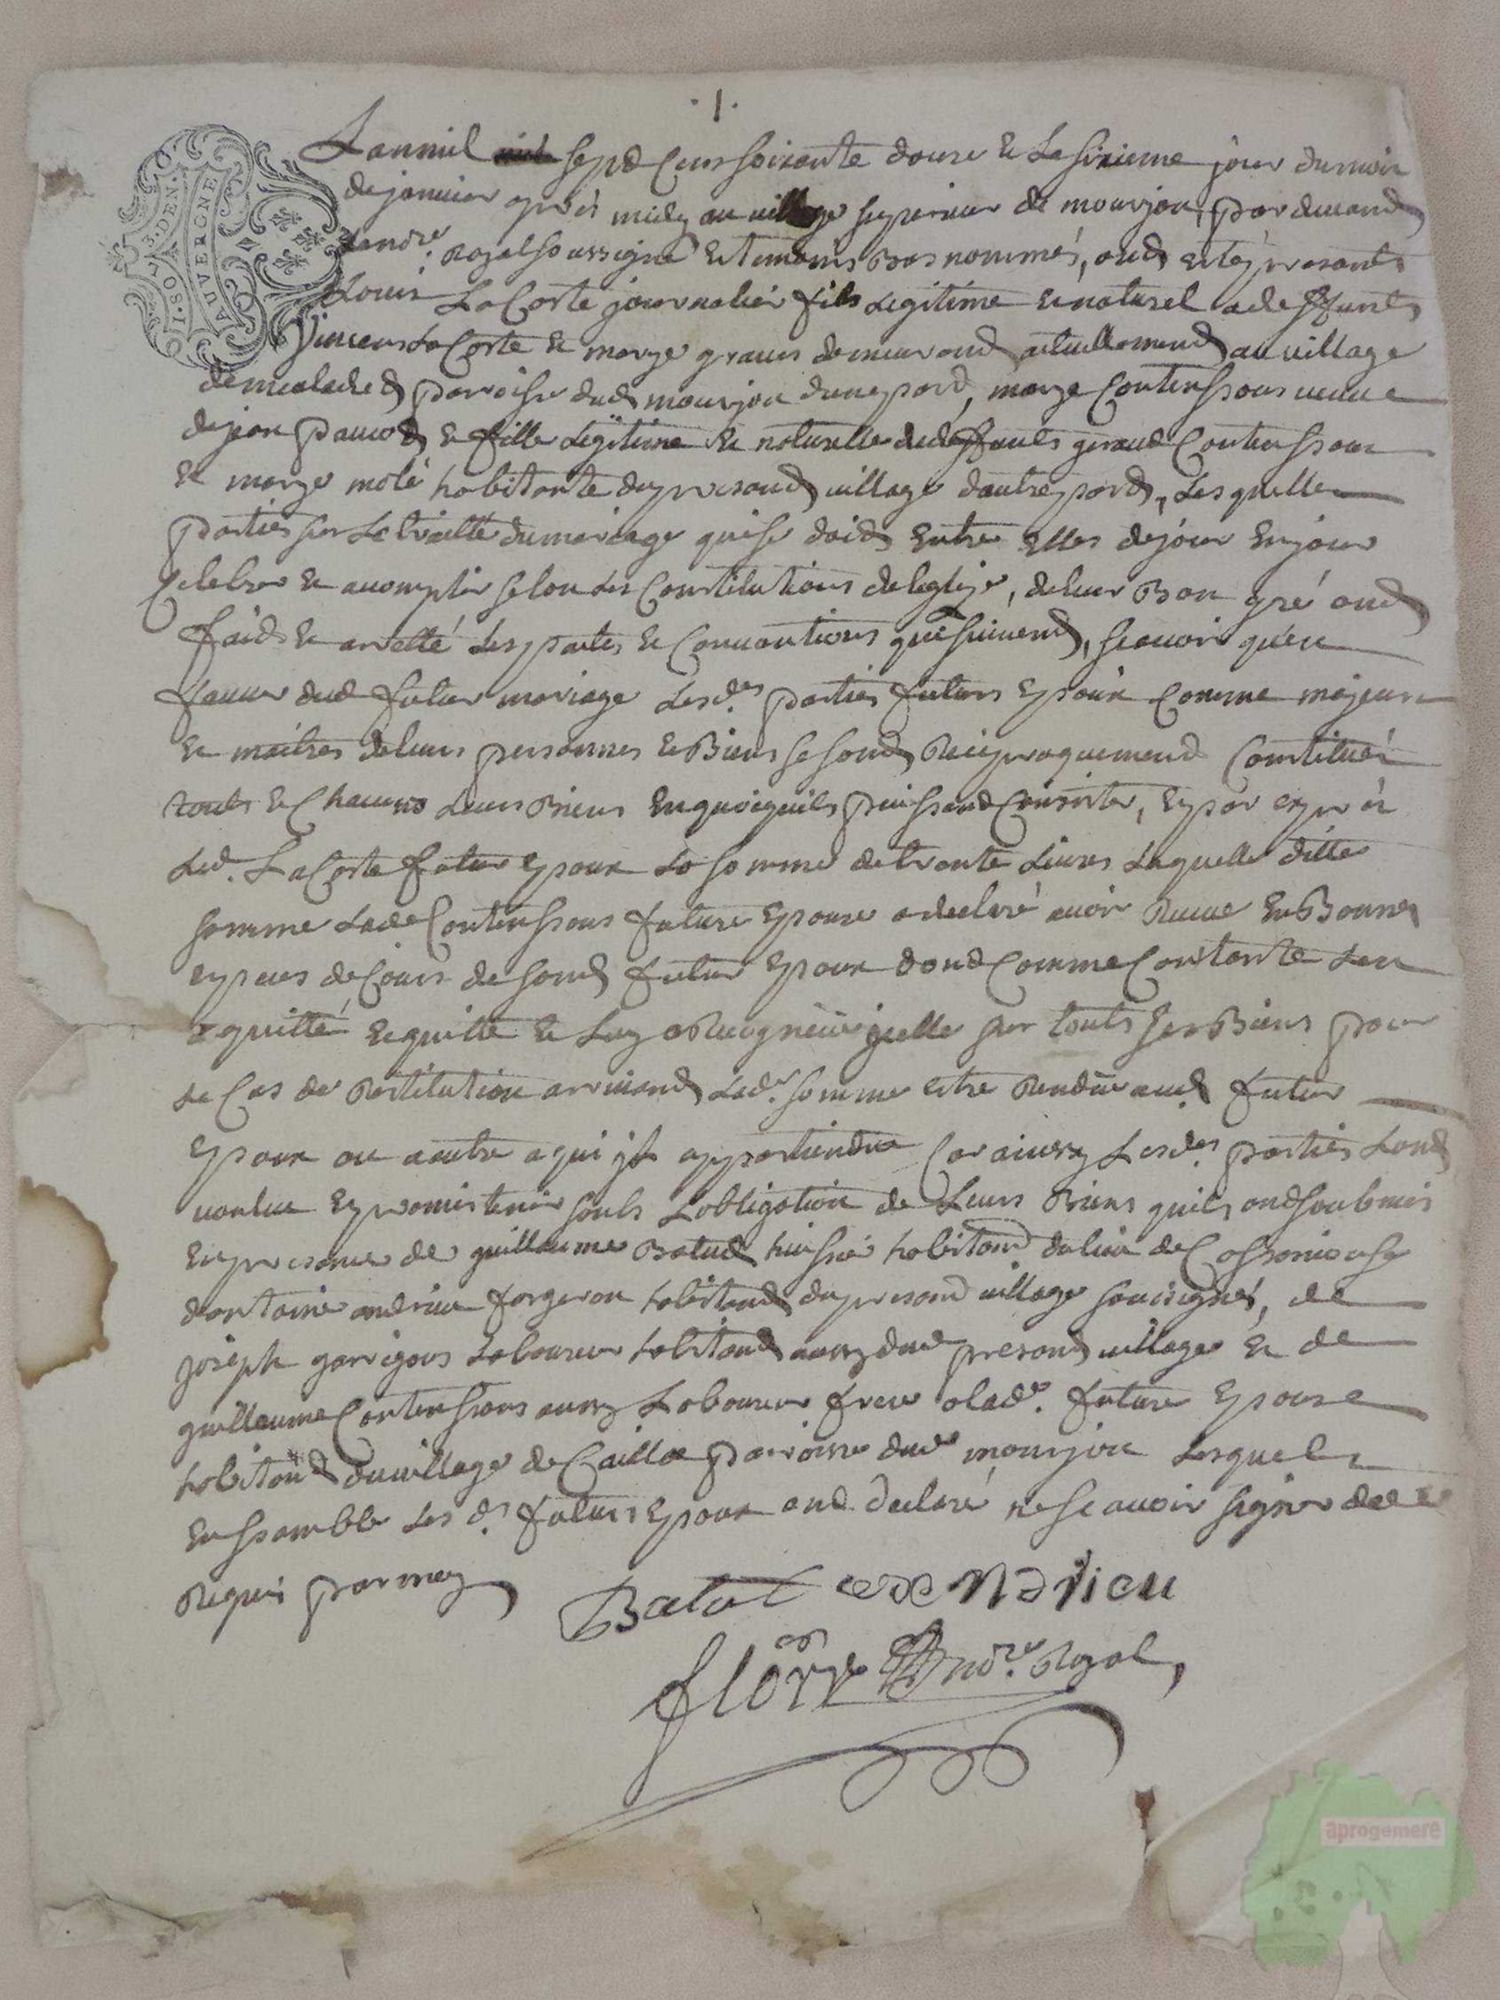 .1.
Lanmil sept Cens soixante douze & Le sixieme jour du mois
de janvier après midy au village superieur de mourjou, par devand
Le no.re Royal soussigné Et temoins Bas nommés, ond esté presents
I.SOL.3.DEN. AUVERGNE
Louis LaCoste journalier fils Legitime & naturel a deffunts
Vincens LaCoste & marye graves demeurand actuellemend au village
de parroisse dud mourjou dune part, marye Contenssous veuve
de jean & fille Legitime & naturelle de deffunts geraud Contenssous
& marye molé habitante du presand village dautre part, Lesquelles
parties sur Le traitté du mariage qui se doid Entre Elles de jour En jour
Celebrer & acomplir selon Les Constitutions de leglize, de leur Bon gré ond
faid & aretté Les pactes & Convantions qui suivend, scavoir quen
faveur dud futur mariage Lesd.es parties futurs Epoux Comme majeurs
& maitres de leurs personnes & Biens se sond Reciproquemend Constitués
touts & Chacuns Leurs Biens En quoi quils puissend Consister, Et par exprès
Led. LaCoste futur Epoux La somme de trante Livres Laquelle ditte
somme Lade Contenssous future Epouse a declaré avoir Receue En Bonnes
especes de Cours de sond futur Epoux dond Comme Contante Len
a quitté & quitte & Luy a Recognüe jcelle sur touts ses Biens pour
Le Cas de Restitution arrivand Lad.e somme estre Rendüe aud. futur
Epoux ou autre a qui jl appartiendra Car ainsy Lesd.es parties Lond
voulue Et promis tenir souls Lobligation de Leurs Biens quils ond soubmis
En presance de guillaume Batud huissié habitand du lieu de Cassaniouse
dantoine andrieu forgeron habitand du presand village soussignés, de
joseph garrigous Laboureur habitand aussy dud presand village & de
guillaume Contenssous aussy Laboureur frere a lad.e future Epouse
habitand du village de Caillac parroisse dud mourjou Lesquels
Enssamble Les d.s futurs Epoux ond declaré ne scavoir signer de ce
Requis par moy
Batut andrieu
florr no.re Royal,
aprogemere